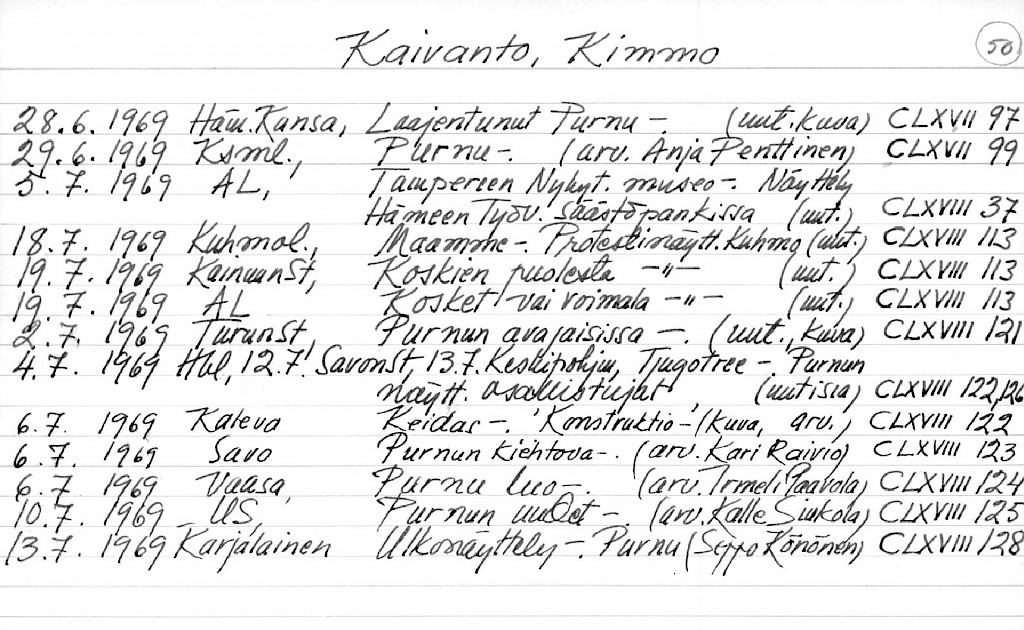 Kaivanto, Kimmo 50
28.6. 1969 Häm.Kansa, Laajentunut Purnu -. (uut.kuva) CLXVII 97
29.6. 1969 Ksml., Purnu-. (arv. Anja Penttinen) CLXVII 99
5.7. 1969 AL, Tampereen Nykyt. museo-. Näyttely
Hämeen Työv. Säästöpankissa (uut.) CLXVIII 37
18.7. 1969 Kuhmol., Maamme-. Protestinäytt. Kuhmo (uut.) CLXVIII 113
19.7. 1969 KainuunSt, Koskien puolesta -"- (uut.) CLXVIII 113
19.7. 1969 AL Kosket vai voimala -"- (uut.) CLXVIII 113
2.7. 1969 TurunSt, Purnun avajaisissa -. (uut., kuva) CLXVIII 121
4.7. 1969 Hbl, 12.7. SavonSt, 13.7. Keskipohjm, Tjugotree -. Purnun
näytt. osallistujat, (uutisia) CLXVIII 122,126
6.7. 1969 Kaleva Keidas -. 'Konstruktio-' (kuva, arv.) CLXVIII 122
6.7. 1969 Savo Purnun kiehtova-. (arv. Kari Raivio) CLXVIII 123
6.7 1969 Vaasa, Purnu luo-. (arv. Irmeli Paavola) CLXVIII 124
10.7. 1969 US, Purnun uudet -. (arv. Kalle Siukola) CLXVIII 125
13.7. 1969 Karjalainen Ulkonäyttely -. Purnu (Seppo Könönen) CLXVIII 128